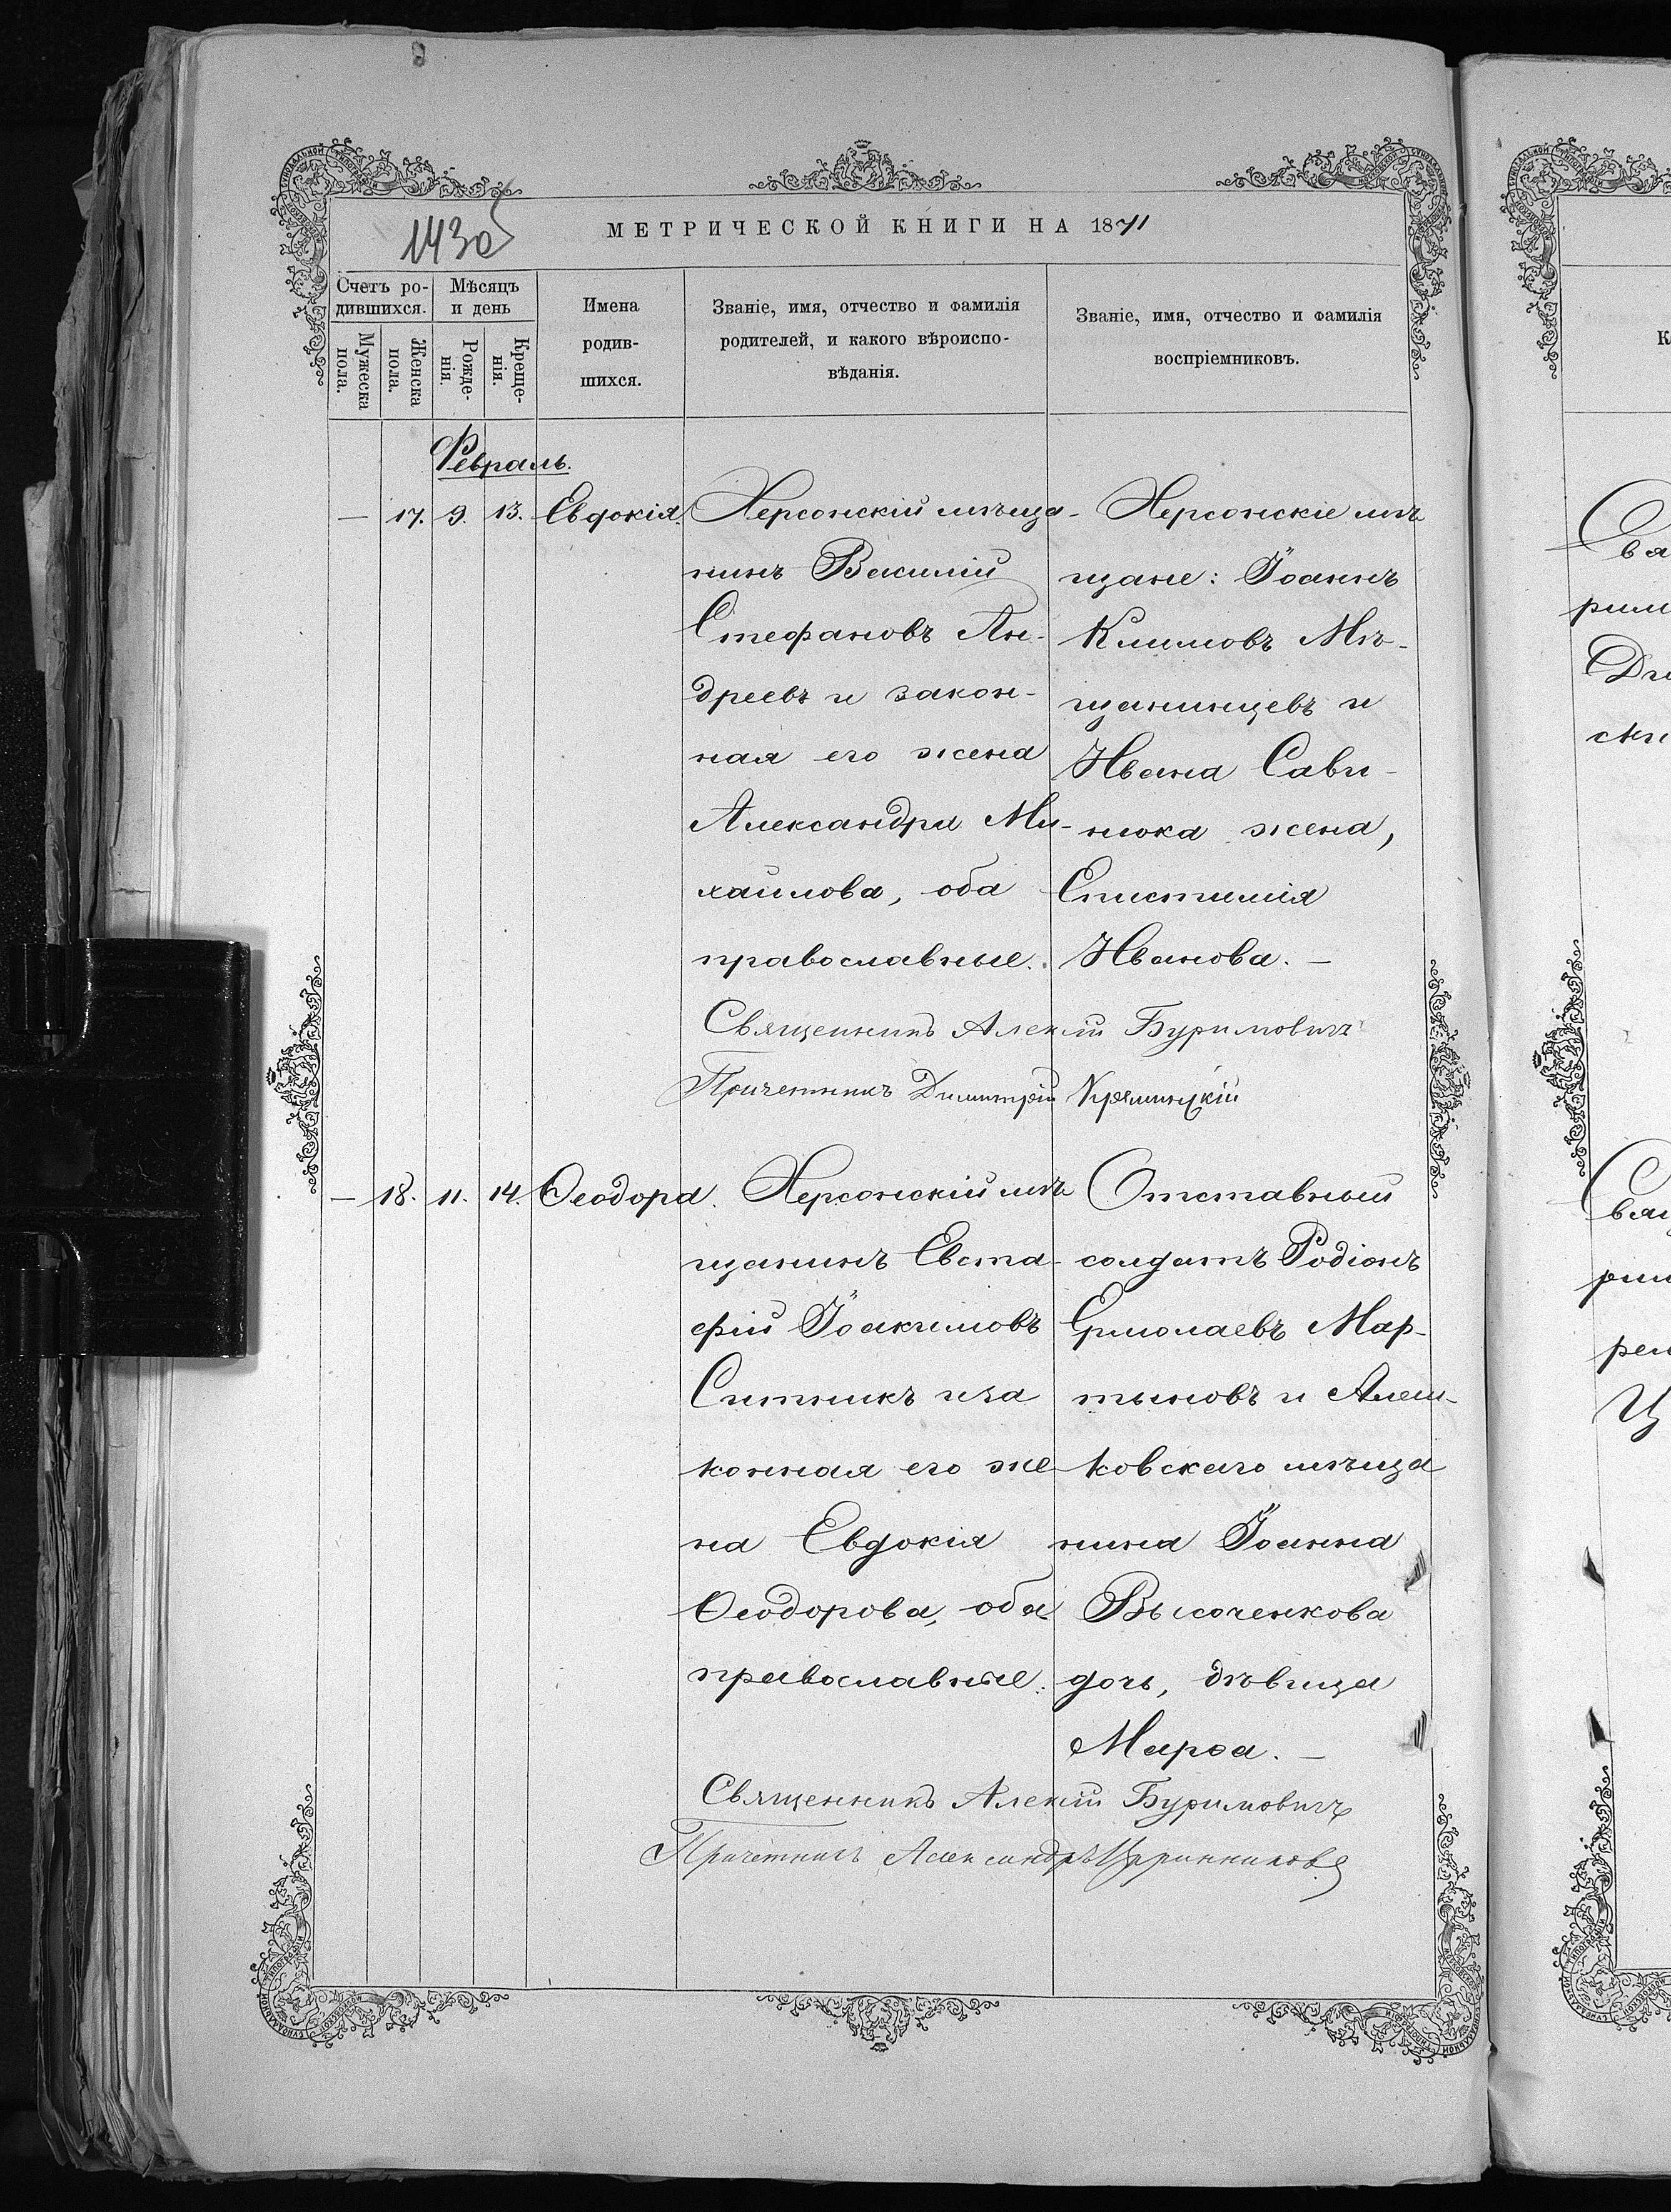 143об
МЕТРИЧЕСКОЙ КНИГИ НА 1871
Счетъ родившихся.
Мѣсяцъ и день
Мужеска пола.
Женска пола.
Рожденія.
Крещенія.
Имена
родив-
шихся.
Званіе, имя, отчество и фамилія
родителей, и какого вѣроиспо-
вѣданія.
Званіе, имя, отчество и фамилія
воспріемниковъ.
Февраль.
— 17. 9. 13. Евдокія.
Херсонскій мѣща-
нинъ Василій
Стефановъ Ан-
дреевъ и закон-
ная его жена
Александра Ми-
хаилова, оба
православные.
Херсонскіе мѣ
щане: Іоаннъ
Климовъ Мѣ-
щанинцевъ и
Ивана Сави-
нюка жена,
Епистимія
Иванова. —
Священникъ Алексій Буримовичъ
Причетникъ Димитрій
— 18. 11. 14. Ѳеодора.
Херсонскій мѣ
щанинъ Евста-
фій Іоакимовъ
Ситникъ и за
конная его же-
на Евдокія
Ѳеодорова, оба
православные.
Отставный
солдатъ Родіонъ
Ермолаевъ Мар-
тыновъ и Алеш-
ковскаго мѣща
нина Іоанна
Высоченкова
дочь, дѣвица
Марѳа. —
Священникъ Алексій Буримовичъ
Причетникъ Александръ